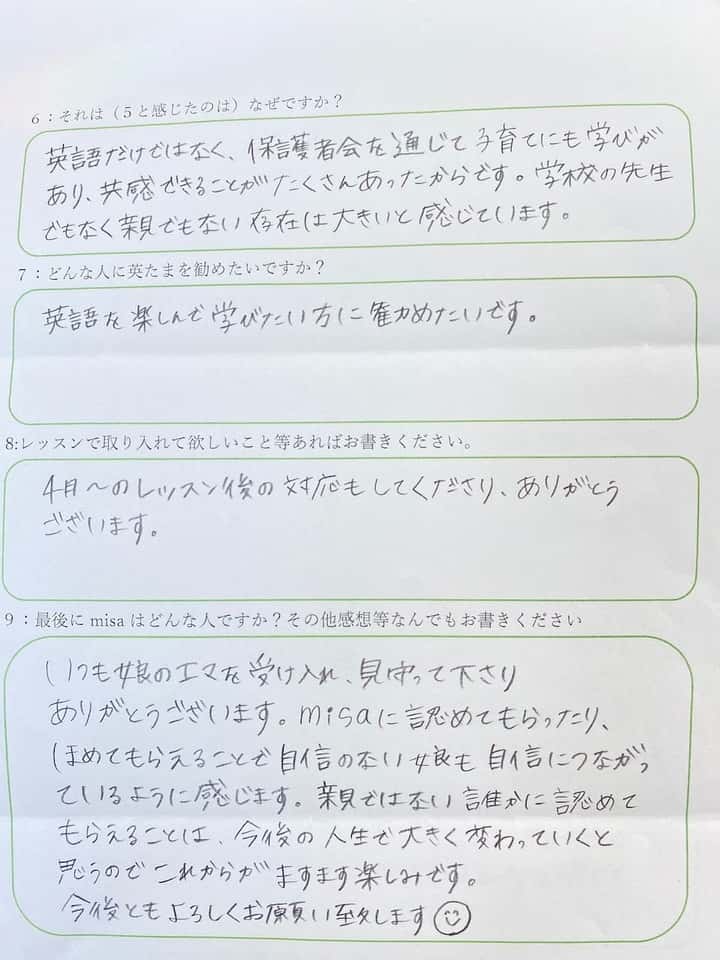 6：それは（5と感じたのは）なぜですか？
英語だけではなく、保護者会を通じて子育てにも学びが
あり、共感できることがたくさんあったからです。学校の先生
でもなく親でもない存在は大きいと感じています。
7：どんな人に英たまを勧めたいですか？
英語を楽しんで学びたい方に勧めたいです。
8:レッスンで取り入れて欲しいこと等あればお書きください。
4月〜のレッスン後の対応もしてくださり、ありがとう
ございます。
9：最後に misa はどんな人ですか？その他感想等なんでもお書きください
いつも娘のエマを受け入れ、見守って下さり
ありがとうございます。misaに認めてもらったり、
ほめてもらえることで自信のない娘も自信につながっ
ているように感じます。親ではない誰かに認めて
もらえることは、今後の人生で大きく変わっていくと
思うのでこれからがますます楽しみです。
今後ともよろしくお願い致します